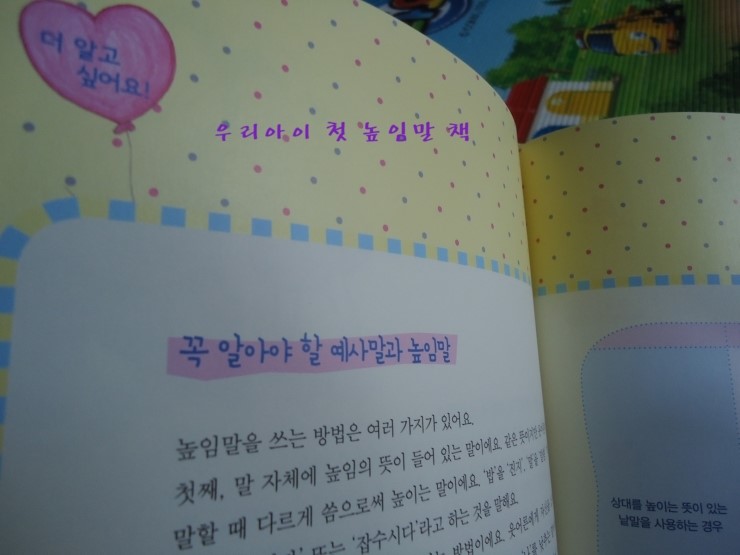 더 알고
싶어요!
우리아이 첫 높임말 책
꼭 알아야 할 예사말과 높임말
높임말을 쓰는 방법은 여러 가지가 있어요.
첫째, 말 자체에 높임의 뜻이 들어 있는 말이에요. 같은
말할 때 다르게 씀으로써 높이는 말이에요. '밥'을 '진지',
또는 '잡수시다'라고 하는 것을 말해요.
방법이에요. 웃어른에게
상대를 높이는 뜻이 있는
낱말을 사용하는 경우